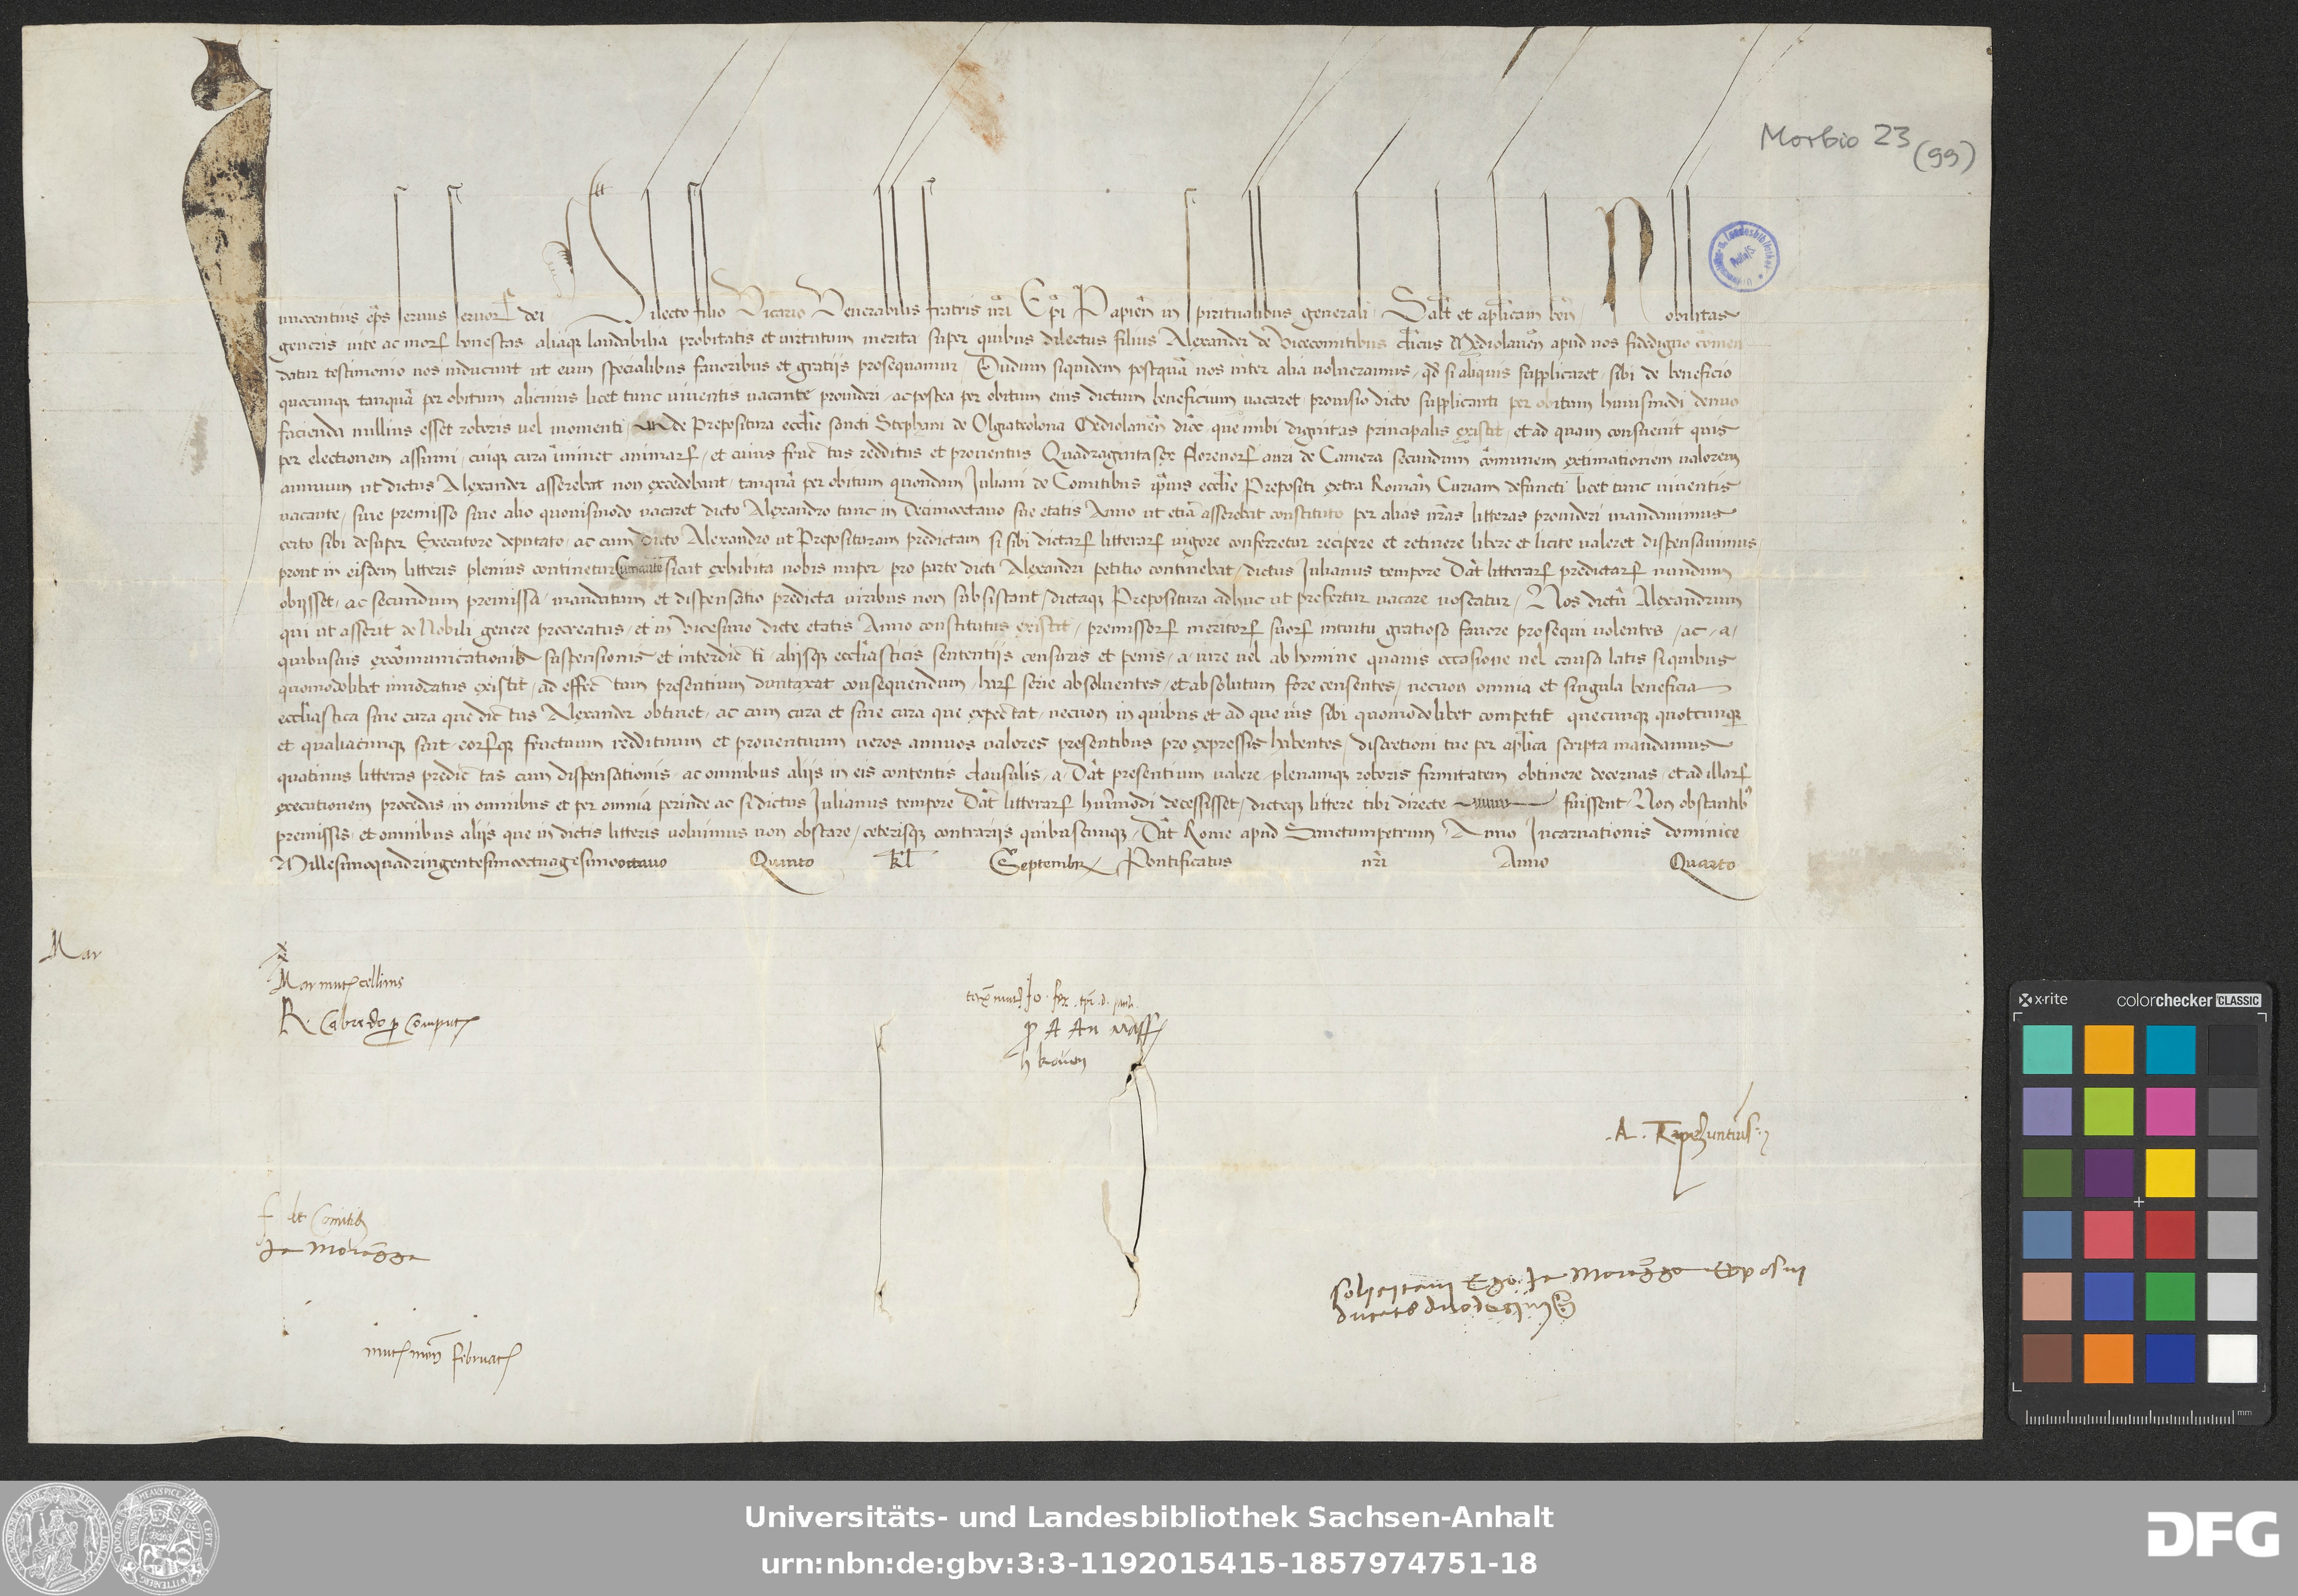 Morbio 23 (99)
Innocentius ep̄s servus servorꝝ dei Dilecto filio Vicario Venerabilis fratris nr̄i Ep̄i Papien̄ in spiritualibus generali Salt̄ et ap̄licam ben̄ Nobilitas
generis vite ac morꝝ honestas aliaque laudabilia probitatis et virtutum merita super quibus dilectus filius Alexander de Vicecomitibus cl̄icus Mediolanen̄ apud nos fidedigno com̄en
datur testimonio nos inducunt ut eum specialibus favoribus et gratijs prosequamur Dudum siquidem postquā nos inter alia volueramus qd̄ si aliquis supplicaret sibi de beneficio
quocunque tanquā per obitum alicuius licet tunc viventis vacante provideri ac postea per obitum eius dictum beneficium vacaret provisio dicto supplicanti per obitum huiusmodi denuo
facienda nullius esset roboris vel momenti de Prepositura eccl̄ie sancti Stephani de Olgiateolona Mediolanen̄ dioc̄ que inibi dignitas principalis existit et ad quam consuevit quis
per electionem assumi cuique cura im̄inet animarꝝ et cuius fructus redditus et proventus Quadragintasex florenorꝝ auri de Camera secundum com̄unem extimationem valorem
annuum ut dictus Alexander asserebat non excedebant tanquā per obitum quondam Juliani de Comitibus ip̄ius eccl̄ie Prepositi extra Roman̄ Curiam defuncti licet tunc viventis
vacante sive premisso sive alio quovismodo vacaret dicto Alexandro tunc in Decimooctavo sue etatis Anno ut etiā asserebat constituto per alias nr̄as litteras provideri mandavimus
certo sibi desuper Executore deputato ac cum dicto Alexandro ut Preposituram predictam si sibi dictarꝝ litterarꝝ vigore conferretur recipere et retinere libere et licite valeret dispensavimus
prout in eisdem litteris plenius continetur Cum autē sicut exhibita nobis nuper pro parte dicti Alexandri petitio continebat dictus Julianus tempore Dat̄ litterarꝝ predictarꝝ nundum
obijsset ac secundum premissa mandatum et dispensatio predicta viribus non subsistant dictaque Prepositura adhuc ut prefertur vacare noscatur Nos dictū Alexandrum
qui ut asserit de Nobili genere procreatus et in Vicesimo dicte etatis Anno constitutus existit premissorꝝ meritorꝝ suorꝝ intuitu gratioso favore prosequi volentes ac a
quibusvis excōmunicationis suspensionis et interdicti alijsque eccl̄iasticis sententijs censuris et penis a iure vel ab homine quavis occasione vel causa latis si quibus
quomodolibet innodatus existit ad effectum presentium duntaxat consequendum harꝝ serie absolventes et absolutum fore censentes necnon omnia et singula beneficia
eccl̄iastica sine cura que dictus Alexander obtinet ac cum cura et sine cura que expectat necnon in quibus et ad que ius sibi quomodolibet competit quecunque quotcunque
et qualiacunque sint eorꝝque fructuum reddituum et proventuum veros annuos valores presentibus pro expressis habentes discretioni tue per ap̄lica scripta mandamus
quatinus litteras predictas cum dispensationis ac omnibus alijs in eis contentis clausulis a Dat̄ presentium valere plenamque roboris firmitatem obtinere decernas et ad illarꝝ
executionem procedas in omnibus et per omnia perinde ac si dictus Julianus tempore Dat̄ litterarꝝ hm̄odi decessisset dicteque littere tibi directe fuissent Non obstantibꝰ
premissis et omnibus alijs que in dictis litteris voluimus non obstare ceterisque contrarijs quibuscunque Dat̄ Rome apud Sanctumpetrum Anno Incarnationis dominice
Millesimoquadringentesimooctuagesimooctavo Quinto kl̄ Septembr̄ Pontificatus nr̄i Anno Quarto
Mar
Mar mut cellinus
R. Cabredo p comput
Jo
p A An
h
A. Trapezuntius
f de Comitibꝫ
Ja Moragga
solicitavi Ego Ja Moragga Exposui
ducatos duodecim
men̄ februar
Universitäts- und Landesbibliothek Sachsen-Anhalt
urn:nbn:de:gbv:3:3-1192015415-1857974751-18
DFG
x-rite colorchecker CLASSIC
mm